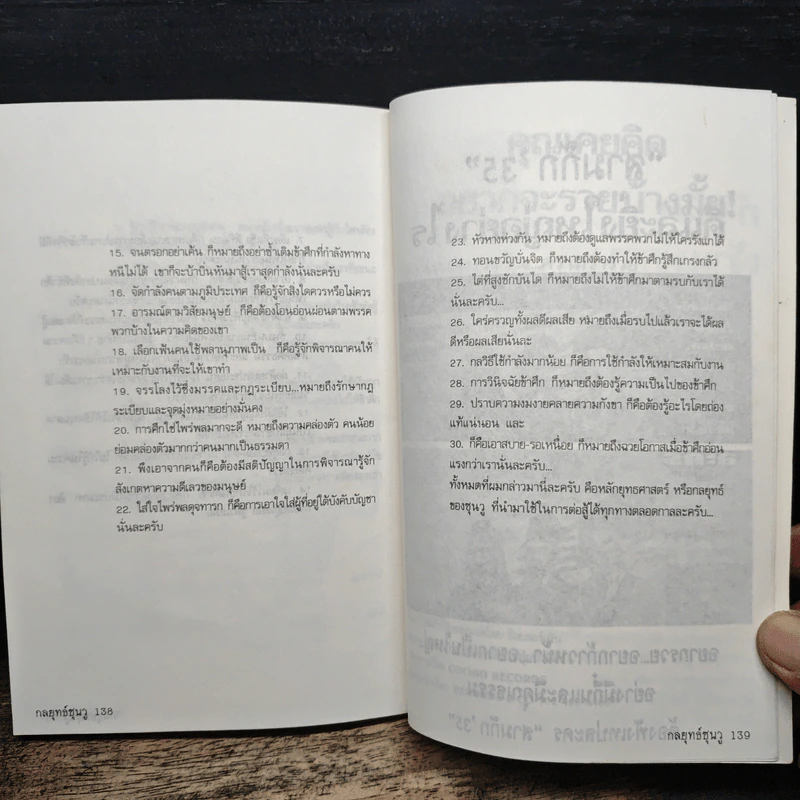 15. จนตรอกอย่าเค้น ก็หมายถึงอย่าซ้ำเติมข้าศึกที่กำลังหาทาง
หนีไม่ได้ เขาก็จะบ้าบิ่นหันมาสู้เราสุดกำลังนั่นละครับ
16. จัดกำลังคนตามภูมิประเทศ ก็คือรู้จักสิ่งใดควรหรือไม่ควร
17. อารมณ์ตามวิสัยมนุษย์ ก็คือต้องโอนอ่อนผ่อนตามพรรค
พวกบ้างในความคิดของเขา
18. เลือกเฟ้นคนใช้พลานุภาพเป็น ก็คือรู้จักพิจารณาคนให้
เหมาะกับงานที่จะให้เขาทำ
19. จรรโลงไว้ซึ่งมรรคและกฎระเบียบ...หมายถึงรักษากฎ
ระเบียบและจุดมุ่งหมายอย่างมั่นคง
20. การศึกใช่ไพร่พลมากจะดี หมายถึงความคล่องตัว คนน้อย
ย่อมคล่องตัวมากกว่าคนมากเป็นธรรมดา
21. พึงเอาจากคนก็คือต้องมีสติปัญญาในการพิจารณารู้จัก
สังเกตหาความดีเลวของมนุษย์
22. ใส่ใจไพร่พลดุจทารก ก็คือการเอาใจใส่ผู้ที่อยู่ใต้บังคับบัญชา
นั่นละครับ
กลยุทธ์ซุนวู 138
23. หัวหางห่วงกัน หมายถึงต้องดูแลพรรคพวกไม่ให้ใครรังแกได้
24. ทอนขวัญบั่นจิต ก็หมายถึงต้องทำให้ข้าศึกรู้สึกเกรงกลัว
25. ไต่ที่สูงชักบันได ก็หมายถึงไม่ให้ข้าศึกมาตามรบกับเราได้
นั่นละครับ...
26. ใคร่ครวญทั้งผลดีผลเสีย หมายถึงเมื่อรบไปแล้วเราจะได้ผล
ดีหรือผลเสียนั่นละ
27. กลวิธีใช้กำลังมากน้อย ก็คือการใช้กำลังให้เหมาะสมกับงาน
28. การวินิจฉัยข้าศึก ก็หมายถึงต้องรู้ความเป็นไปของข้าศึก
29. ปราบความงมงายคลายความกังขา ก็คือต้องรู้อะไรโดยถ่อง
แท้แน่นอน และ
30. ก็คือเอาสบาย-รอเหนื่อย ก็หมายถึงฉวยโอกาสเมื่อข้าศึกอ่อน
แรงกว่าเรานั่นละครับ...
ทั้งหมดที่ผมกล่าวมานี่ละครับ คือหลักยุทธศาสตร์ หรือกลยุทธ์
ของซุนวู ที่นำมาใช้ในการต่อสู้ได้ทุกทางตลอดกาลละครับ...
กลยุทธ์ซุนวู 139